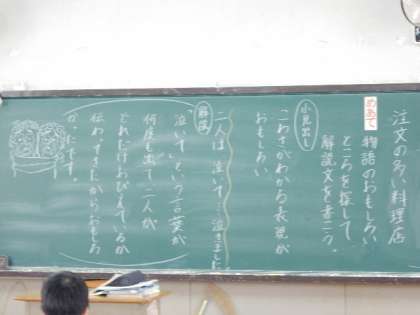 注文の多い料理店
めあて
物語のおもしろい
ところを探して、
解説文を書こう。
小見出し
こわさがわかる表現が
おもしろい
二人は泣いて…泣きました
解説
「泣いて」という言葉が
何度も出て二人が
どれだけおびえているか
伝わってきたからおもしろ
かったです。